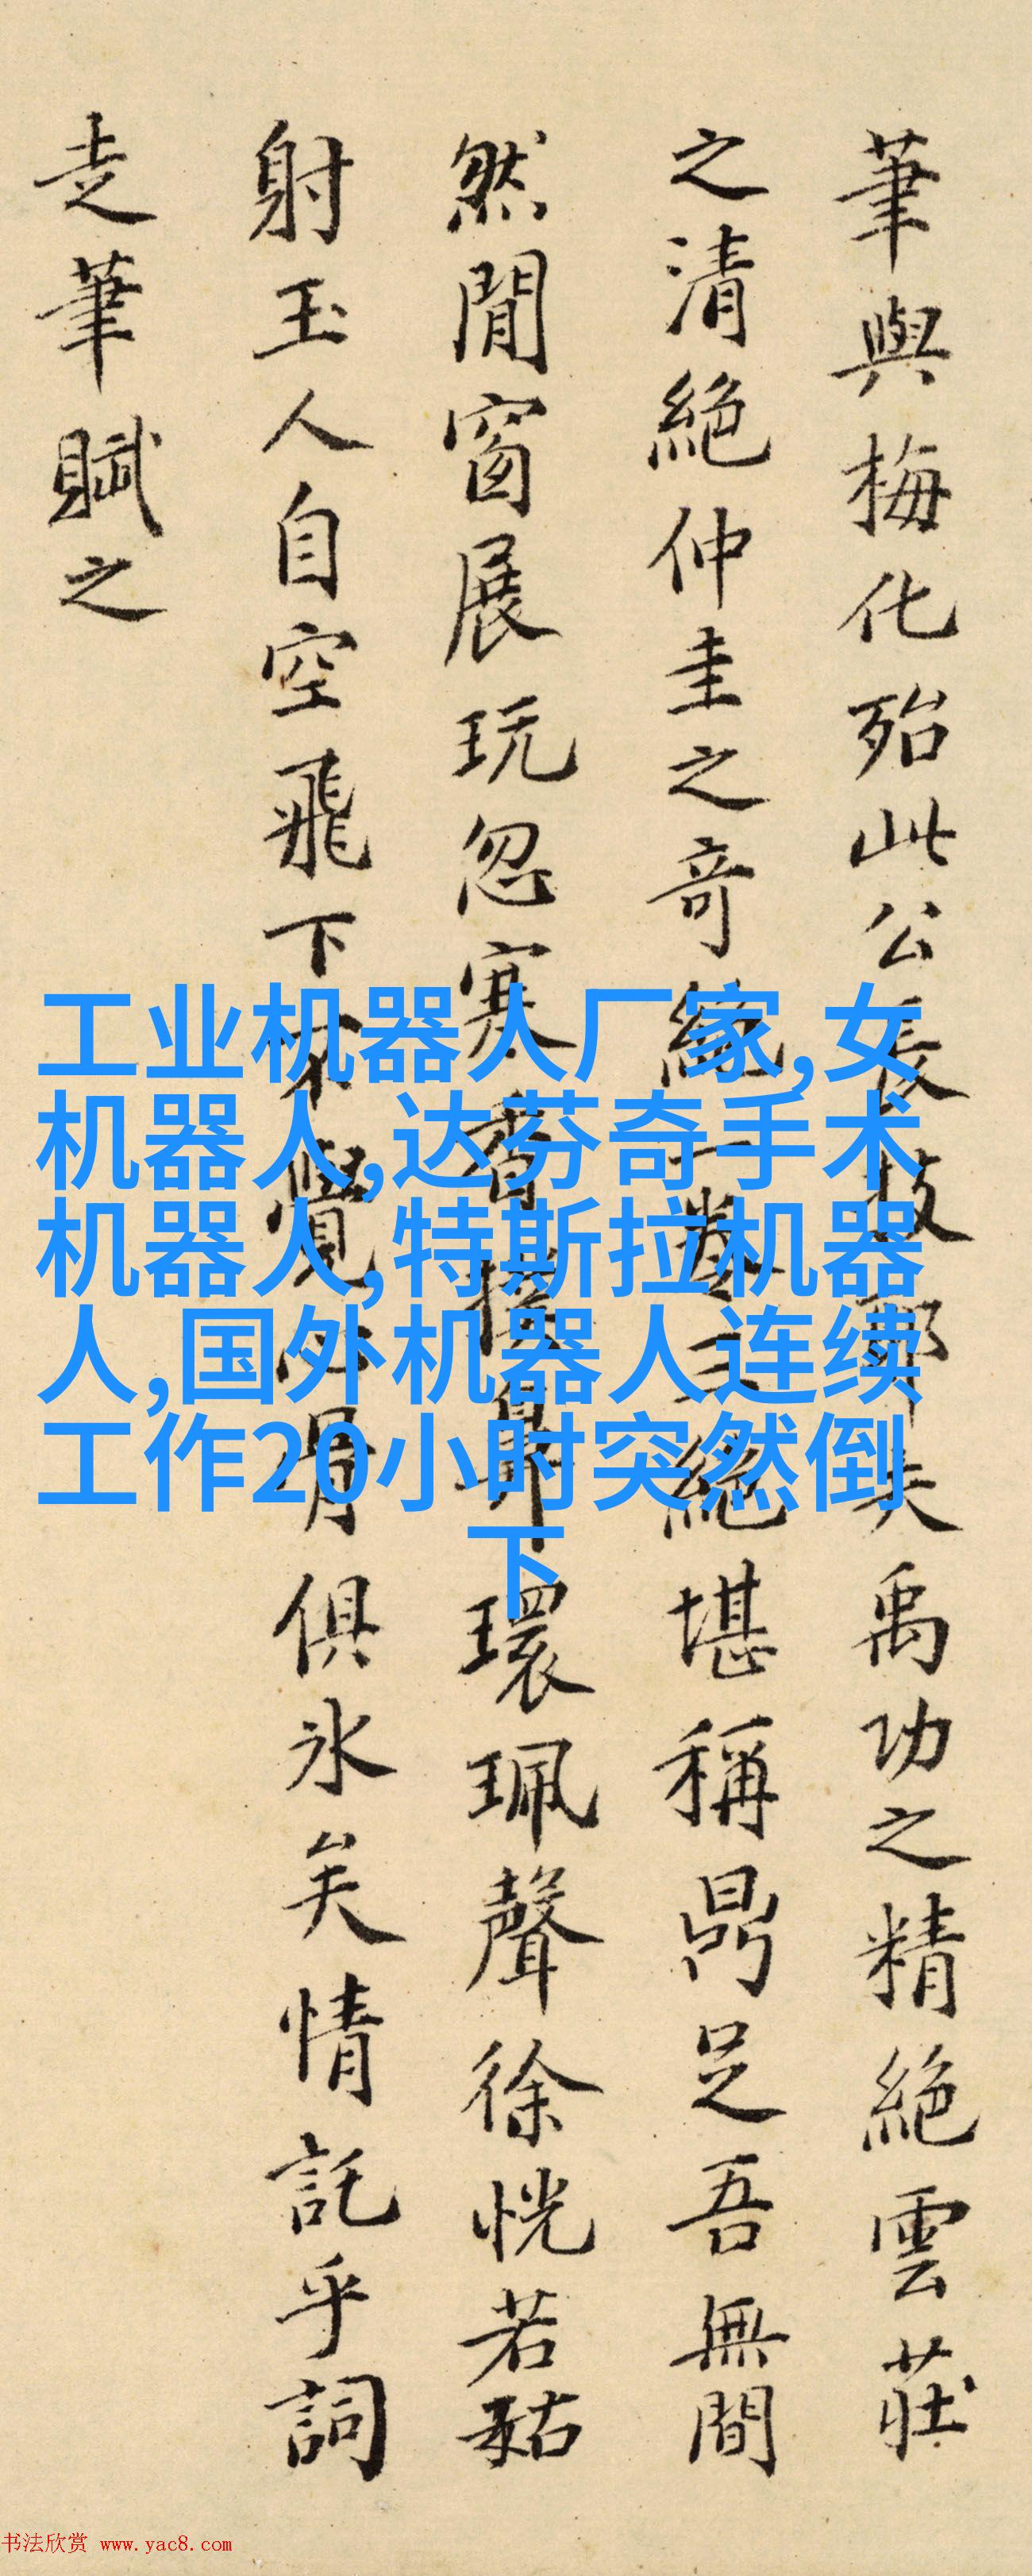 筆與梅化殆此公長技耶夫禹功之精絕雲莊
之清絕仲圭之奇總堪稱鼎足吾無間
然閒窗展玩忽寒香撲鼻環珮聲徐恍若
射玉人自空飛下不覺心骨俱冰矣情託乎詞
走筆賦之
工业机器人厂家,女
机器人,达芬奇手术
机器人,特斯拉机器
人,国外机器人连续
工作20小时突然倒
下
书法欣赏 www.yac8.com